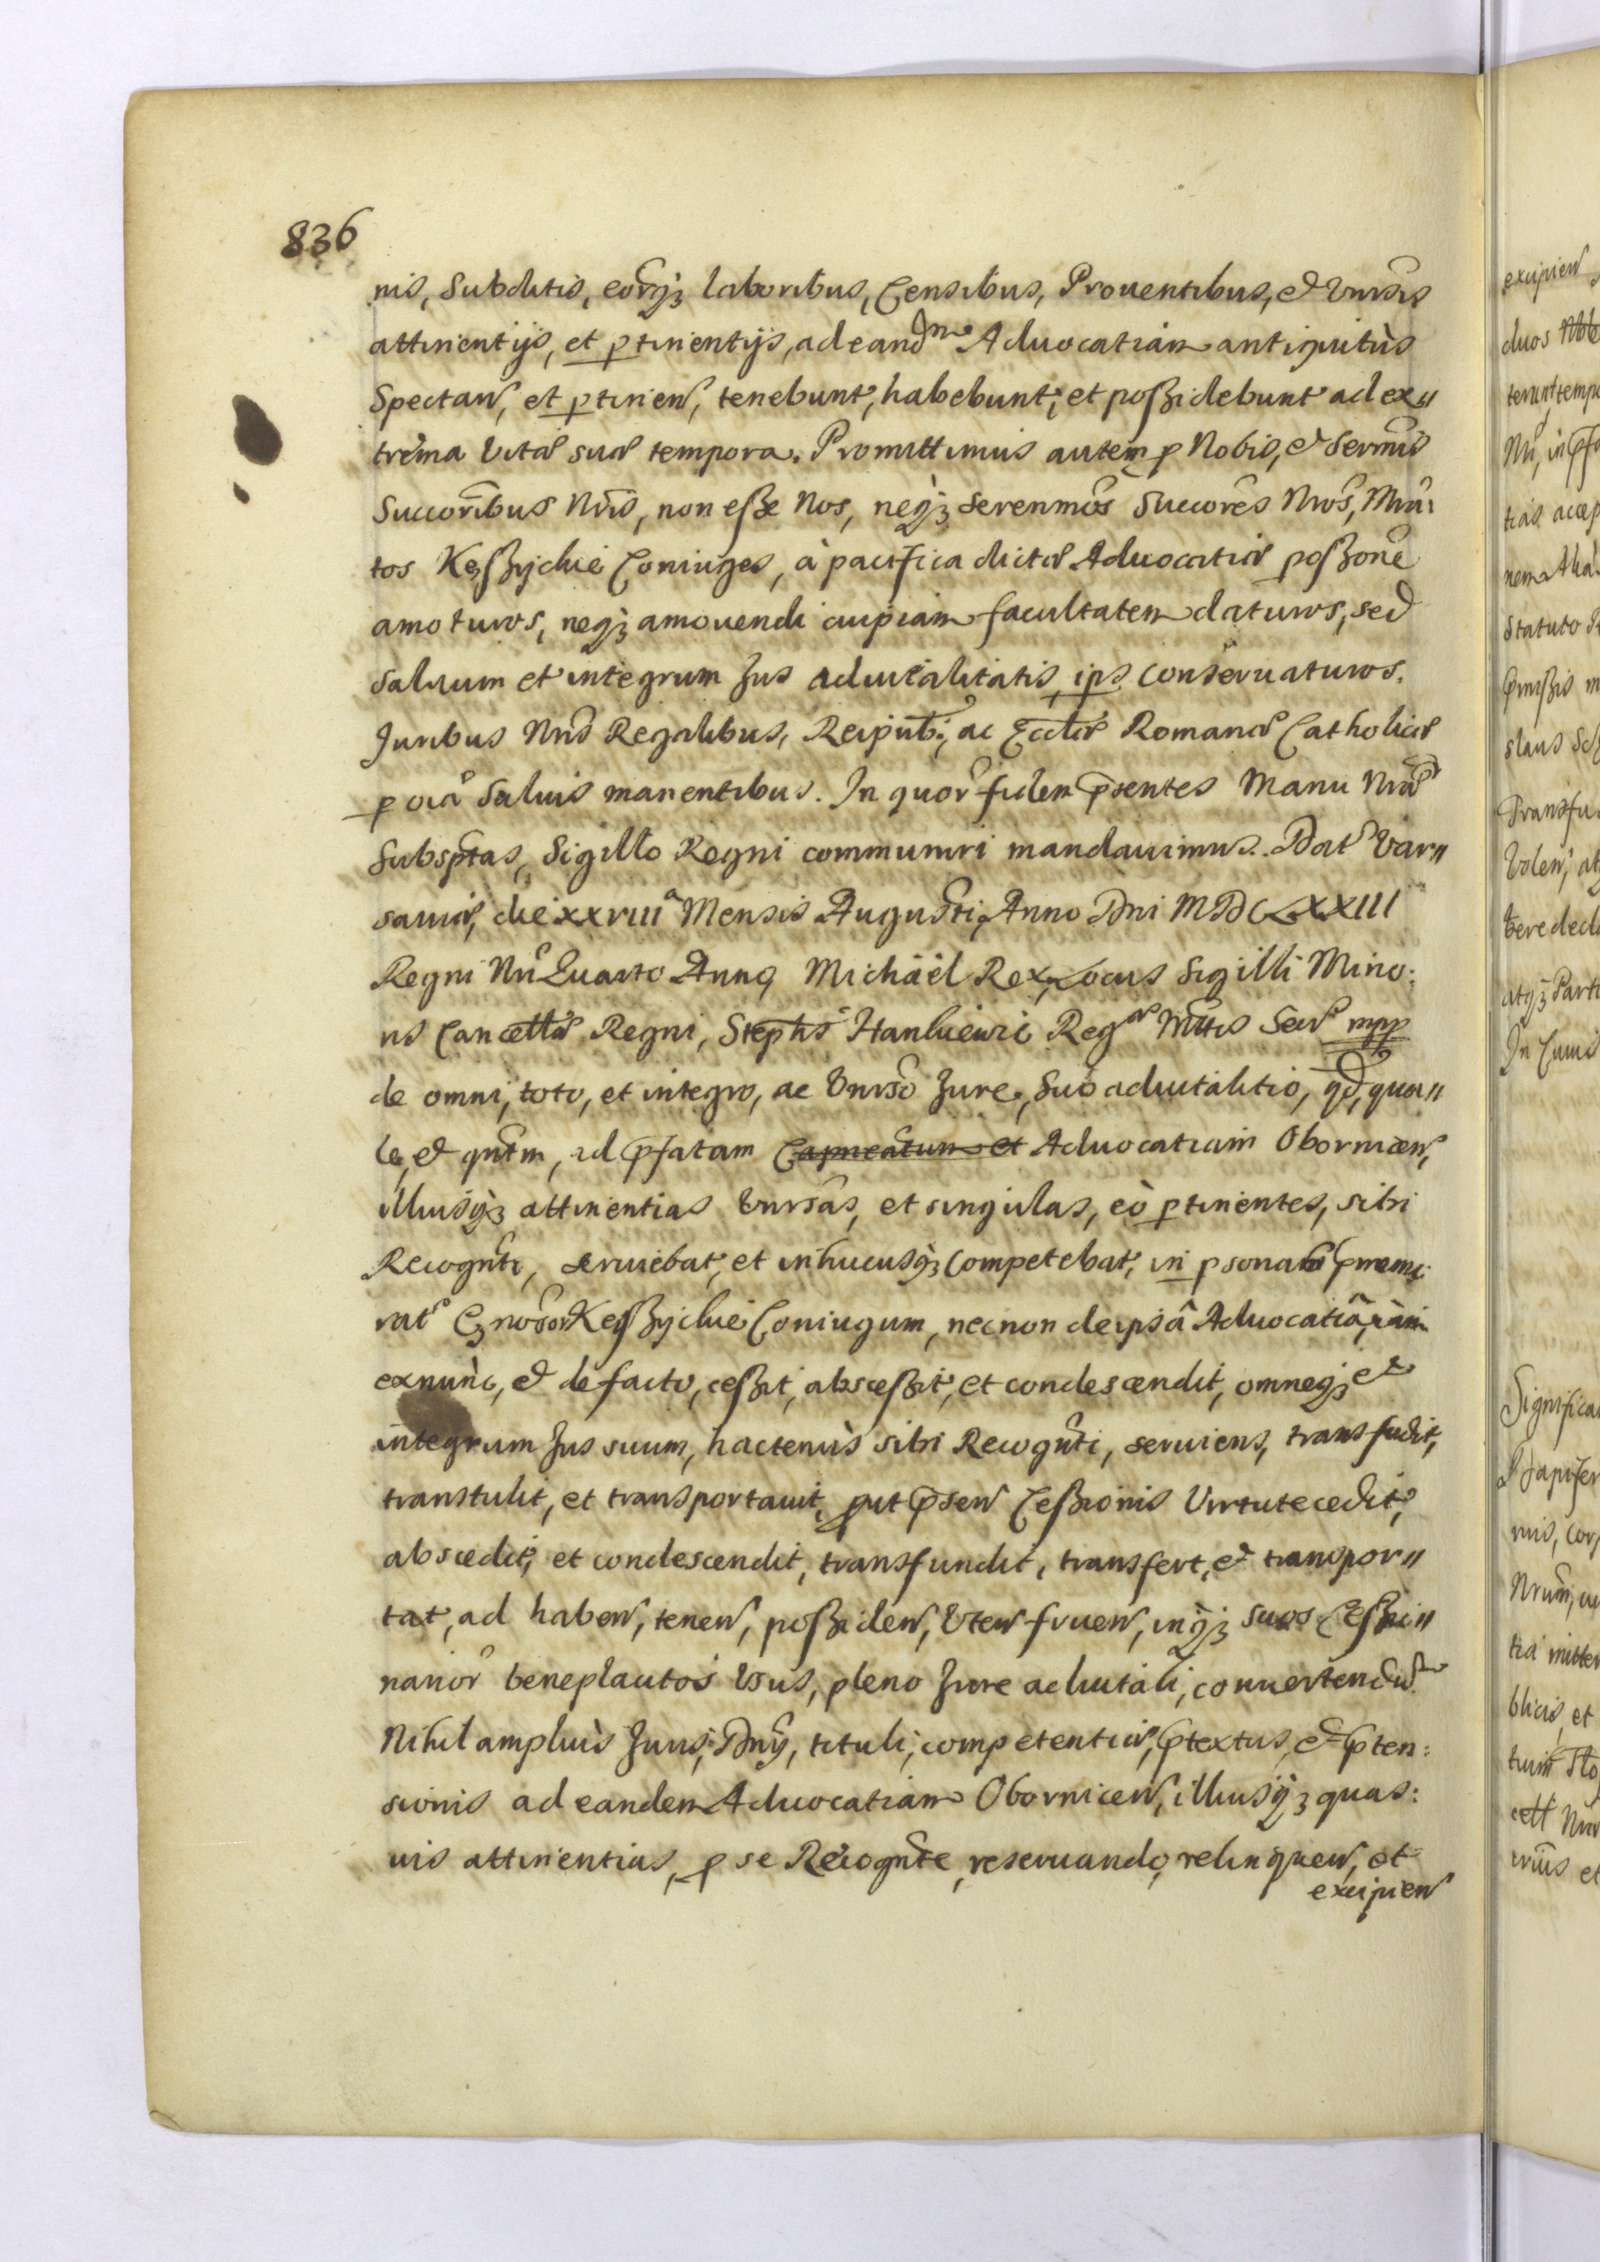 836
nis, Subditis, eorq₃ laboribus, Censibus, Prouentibus, et Vnrsis
attinentijs, et ptinentijs, ad eandm Aduocatiam antiquitùs
Spectan, et ptinen, tenebunt, habebunt, et poßidebunt ad ex〃
trema Vitæ suæ tempora. Promittimus autem p Nobis, et Sermis
Succoribus Nris, non eße Nos, neq₃ Serenmos Succores Nros,
tos Keßzyckie Coniuges, à pacifica dictæ Aduocatiæ poßone
amoturos, neq₃ amouendi cuipiam facultatem daturos, sed
saluum et integrum Jus aduitalitatis ips conseruaturos.
Juribus Nris Regalibus, Reipub: ac Eccliæ Romanæ Catholicæ
p oia saluis manentibus. In quor fidem psentes Manu Nra
subsptas, Sigillo Regni communiri mandauimus. Dat Var〃
sauiæ, die XXVIIIa Mensis Augusti, Anno Dni MDCLXXIII
Regni Nri Quarto Anno, Michaël Rex, Locus Sigilli Mino:
ris Cancellæ Regni, Stephs Hankiewic Regæ Mttis Secr mpp
de omni, toto, et integro, ac Vnrso Jure, suo aduitalitio, qd, qua〃
le, et qntm, ad pfatam Capneatum et Aduocatiam Obornicen,
illiusq₃ attinentias Vnrsas, et singulas, eò ptinentes, sibi
Recognti, seruiebat, et inhucusq₃ competebat, in psonam pmemo
rat Gnosor Keßzyckie Coniugum, nec non de ipsâ Aduocatiâ, iàm
exnunc, et de facto, ceßit, absceßit, et condescendit, omneq₃ et
integrum Jus suum, hactenùs sibi Recognti, seruiens, transfudit,
transtulit, et transportauit, put psen Ceßionis Virtute cedit,
abscedit, et condescendit, transfundit, transfert, et transpor〃
tat, ad haben, tenen, poßiden, Vten fruen, inq₃ suos Ceßio〃
narior beneplacitos Vsus, pleno Jure aduitali, conuertendum
Nihil ampliùs Juris, Dnij, tituli, competentiæ, ptextus, et pten:
sionis ad eandem Aduocatiam Obornicen, illiusq₃ quas:
uis attinentias, p se Recognte, reseruando, relinquen, et
excipien
excipien
duos
Statuto
slaus
Volen,
atq₃
In
et
et